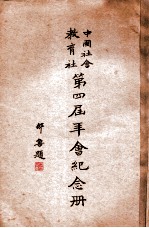 中國社會
教育社
第四屆年會紀念册
鄒魯題